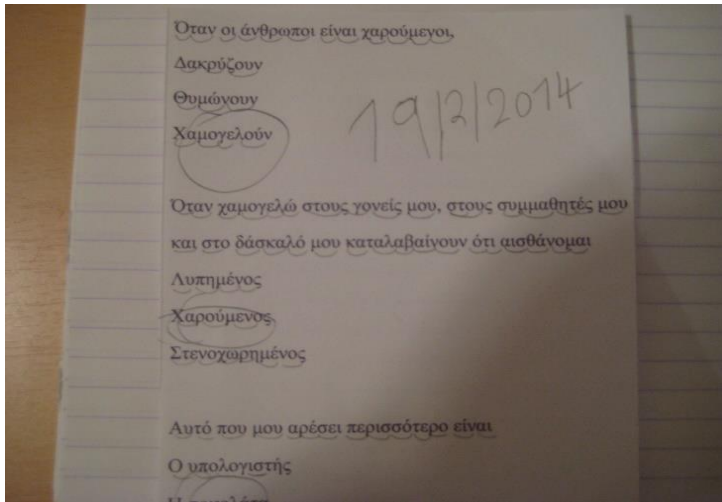 Όταν οι άνθρωποι είναι χαρούμενοι,
Δακρύζουν
Θυμώνουν
Χαμογελούν
19/2/2014
Όταν χαμογελώ στους γονείς μου, στους συμμαθητές μου
και στο δάσκαλό μου καταλαβαίνουν ότι αισθάνομαι
Λυπημένος
Χαρούμενος
Στενοχωρημένος
Αυτό που μου αρέσει περισσότερο είναι
Ο υπολογιστής